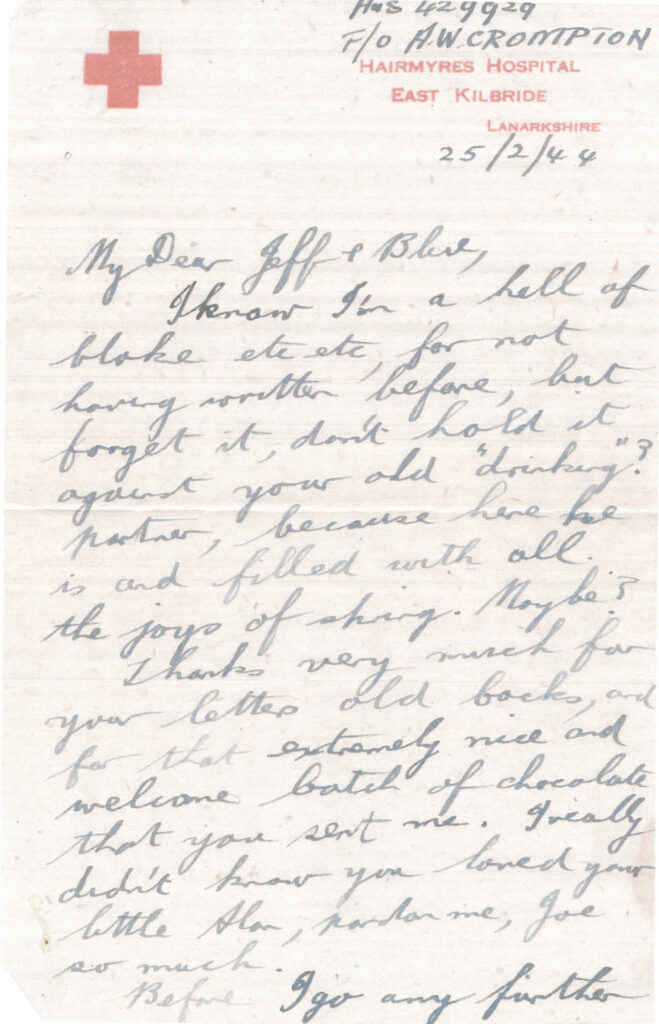 AUS 429929
F/O A.W. CROMPTON
HAIRMYRES HOSPITAL
EAST KILBRIDE
LANARKSHIRE
25/2/44
My Dear Jeff & Blue,
I know I'm a hell of
bloke etc etc, for not
having written before, but
forget it, don't hold it
against your old "drinking"?
partner, because here he
is and filled with all
the joys of spring. Maybe?
Thanks very much for
your letters old cocks, and
for that extremely nice and
welcome batch of chocolate
that you sent me. I really
didn't know you loved your
little Alan, pardon me, Joe
so much.
Before I go any further